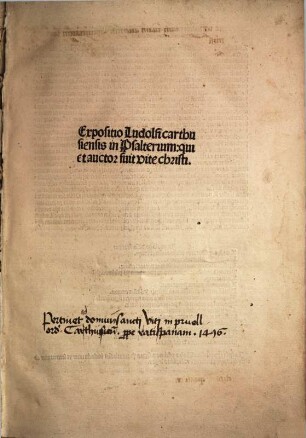 Expositio Ludolfi carthu
siensis in Psalterium: qui
et auctor fuit vite christi.
Pertinet ad domum sancti Viti in pruell
ord. Carthusien. ꝓpe ratisponam. 1496.